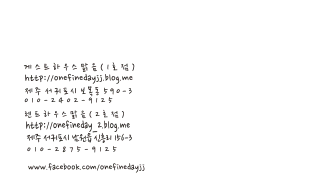 게스트하우스맑음(1호점)
http://onefinedayjj.blog.me
제주 서귀포시 보목동 590-3
010-2402-9125
렌트하우스맑음(2호점)
http://onefineday_2.blog.me
제주 서귀포시 남원읍 신흥리 156-3
010-2875-9125
www.facebook.com/onefinedayjj